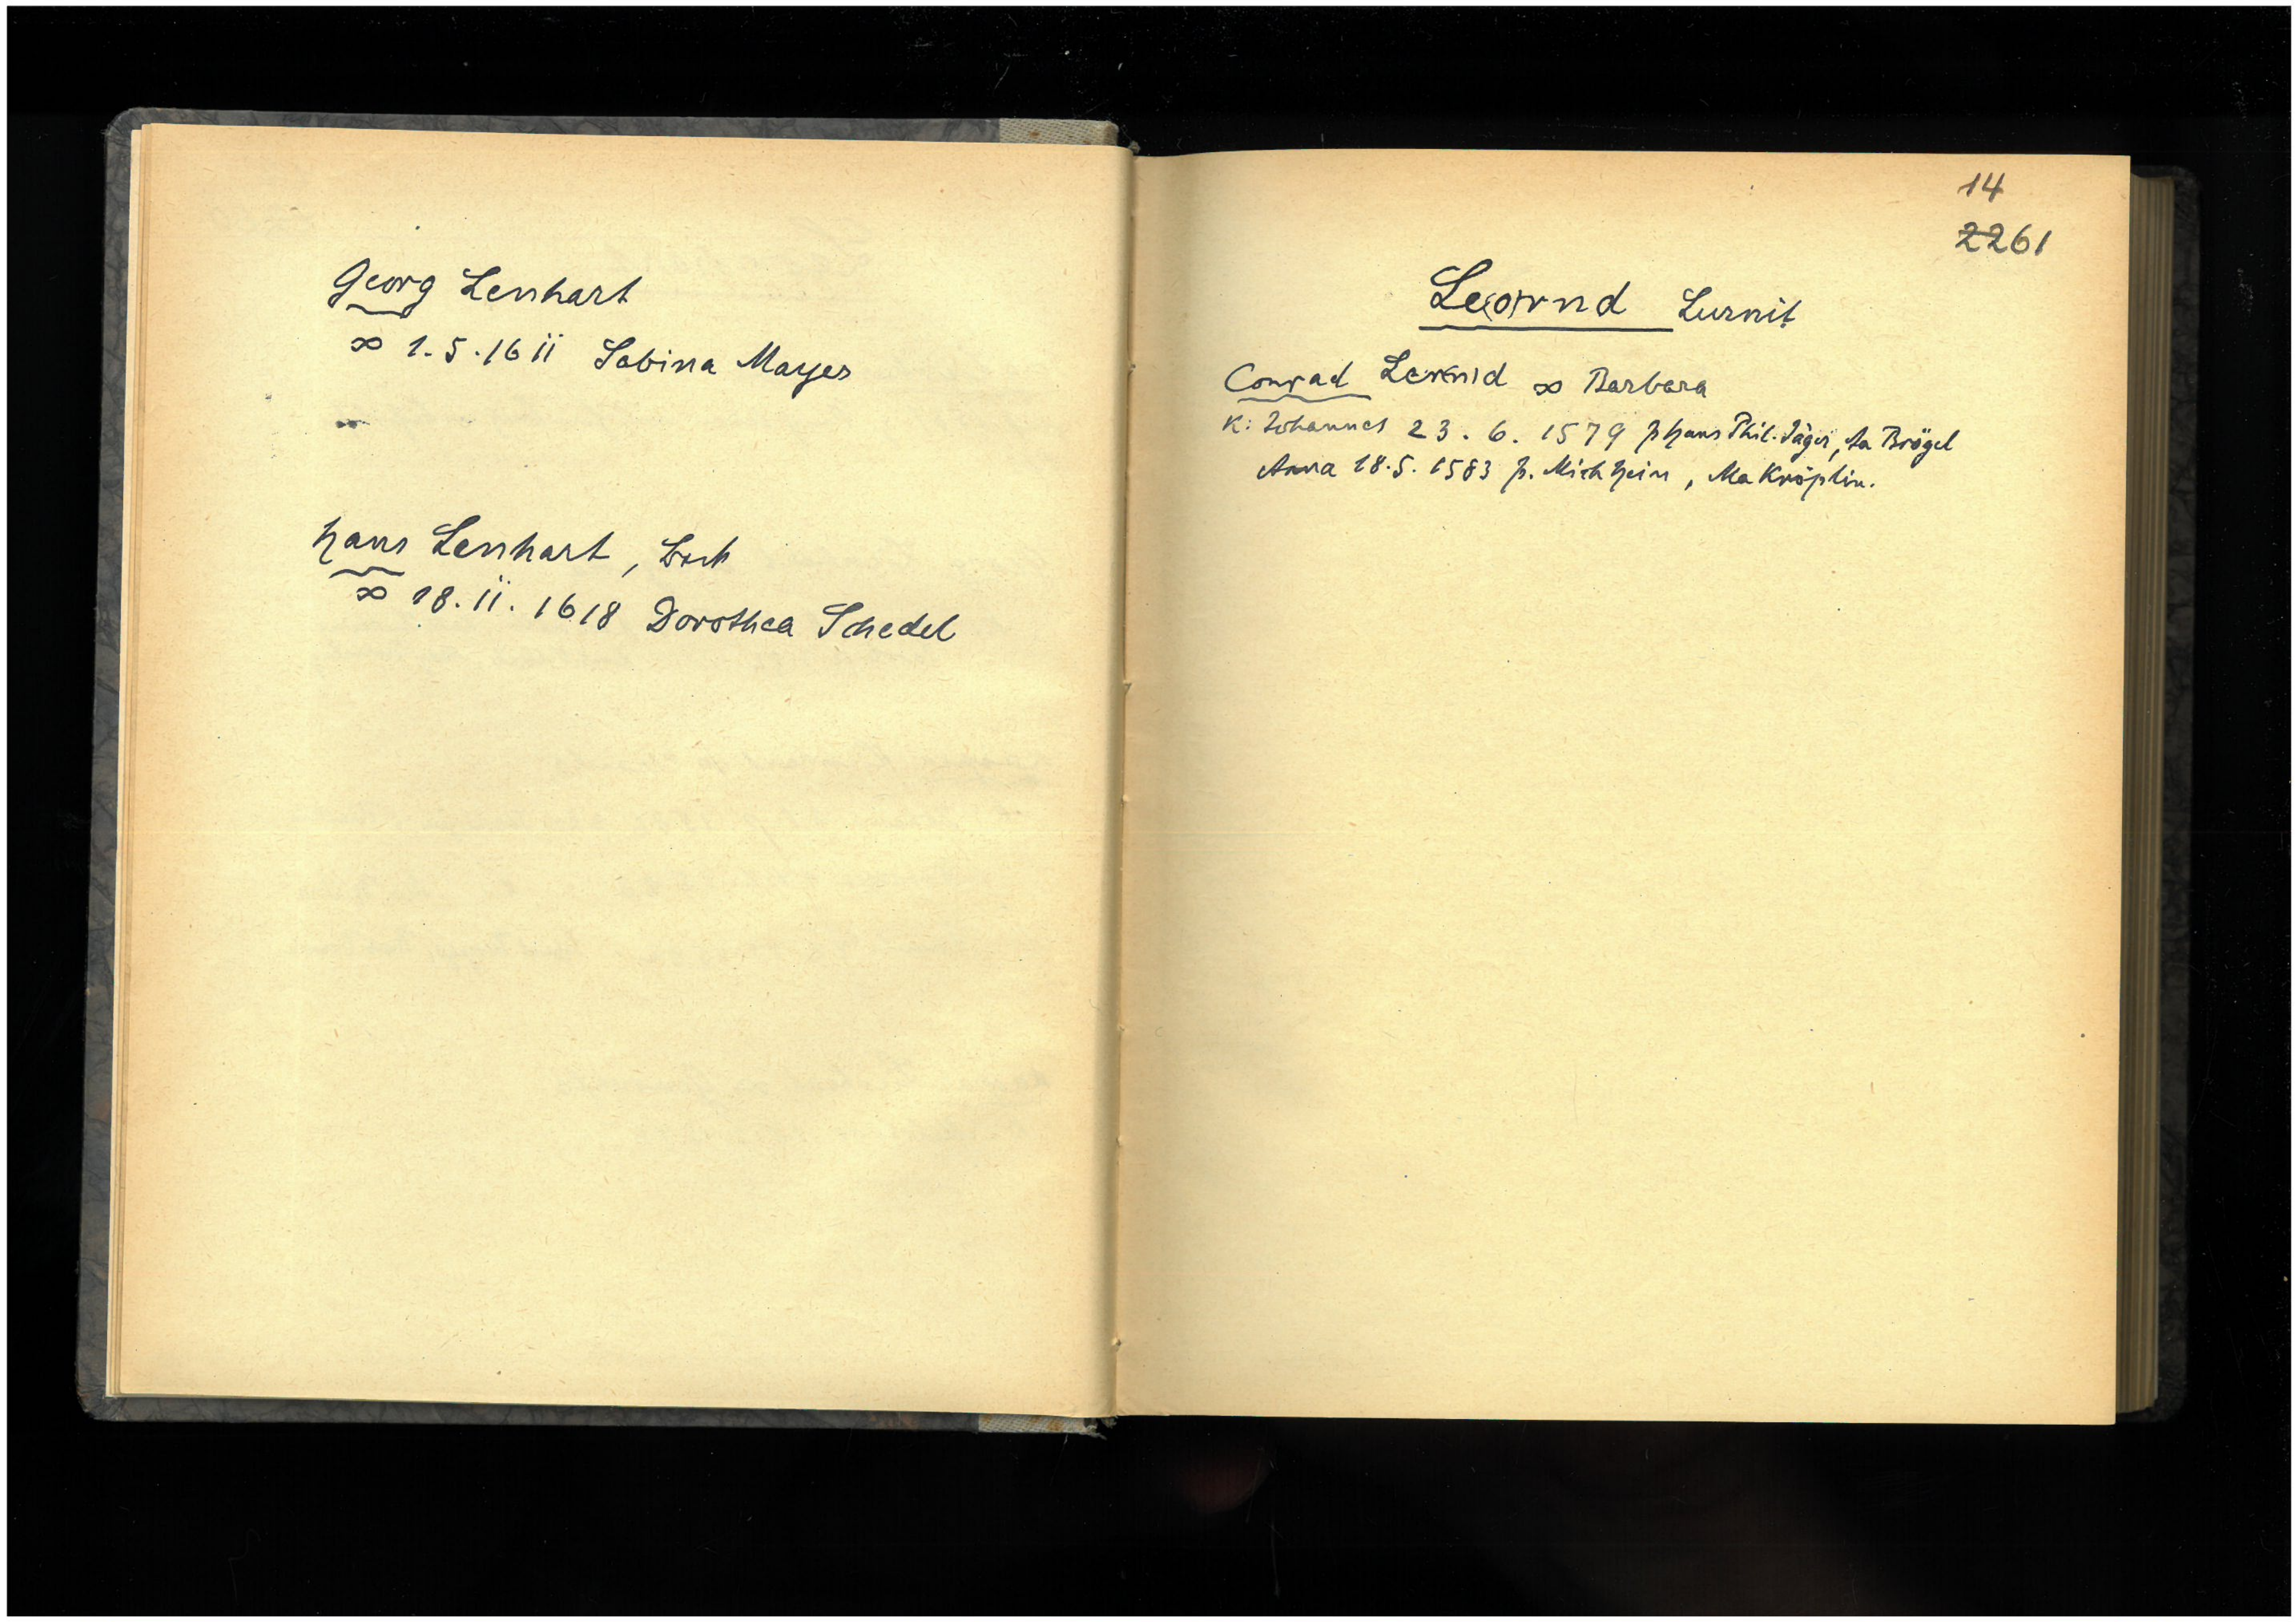 Georg Lenhart
∞ 1.5.1611 Sabina Mayer
Hans Lenhart,
∞ 18.11.1618 Dorothea Schedel
14
2261
Le(o)rnd Lurnit
Conrad ∞ Barbara
K: Johannes 23.6.1579 p Hans Phil. Jäger, Aa Brögel
Anna 18.5.1583 p. Mich Hein, Ma Kröplin.